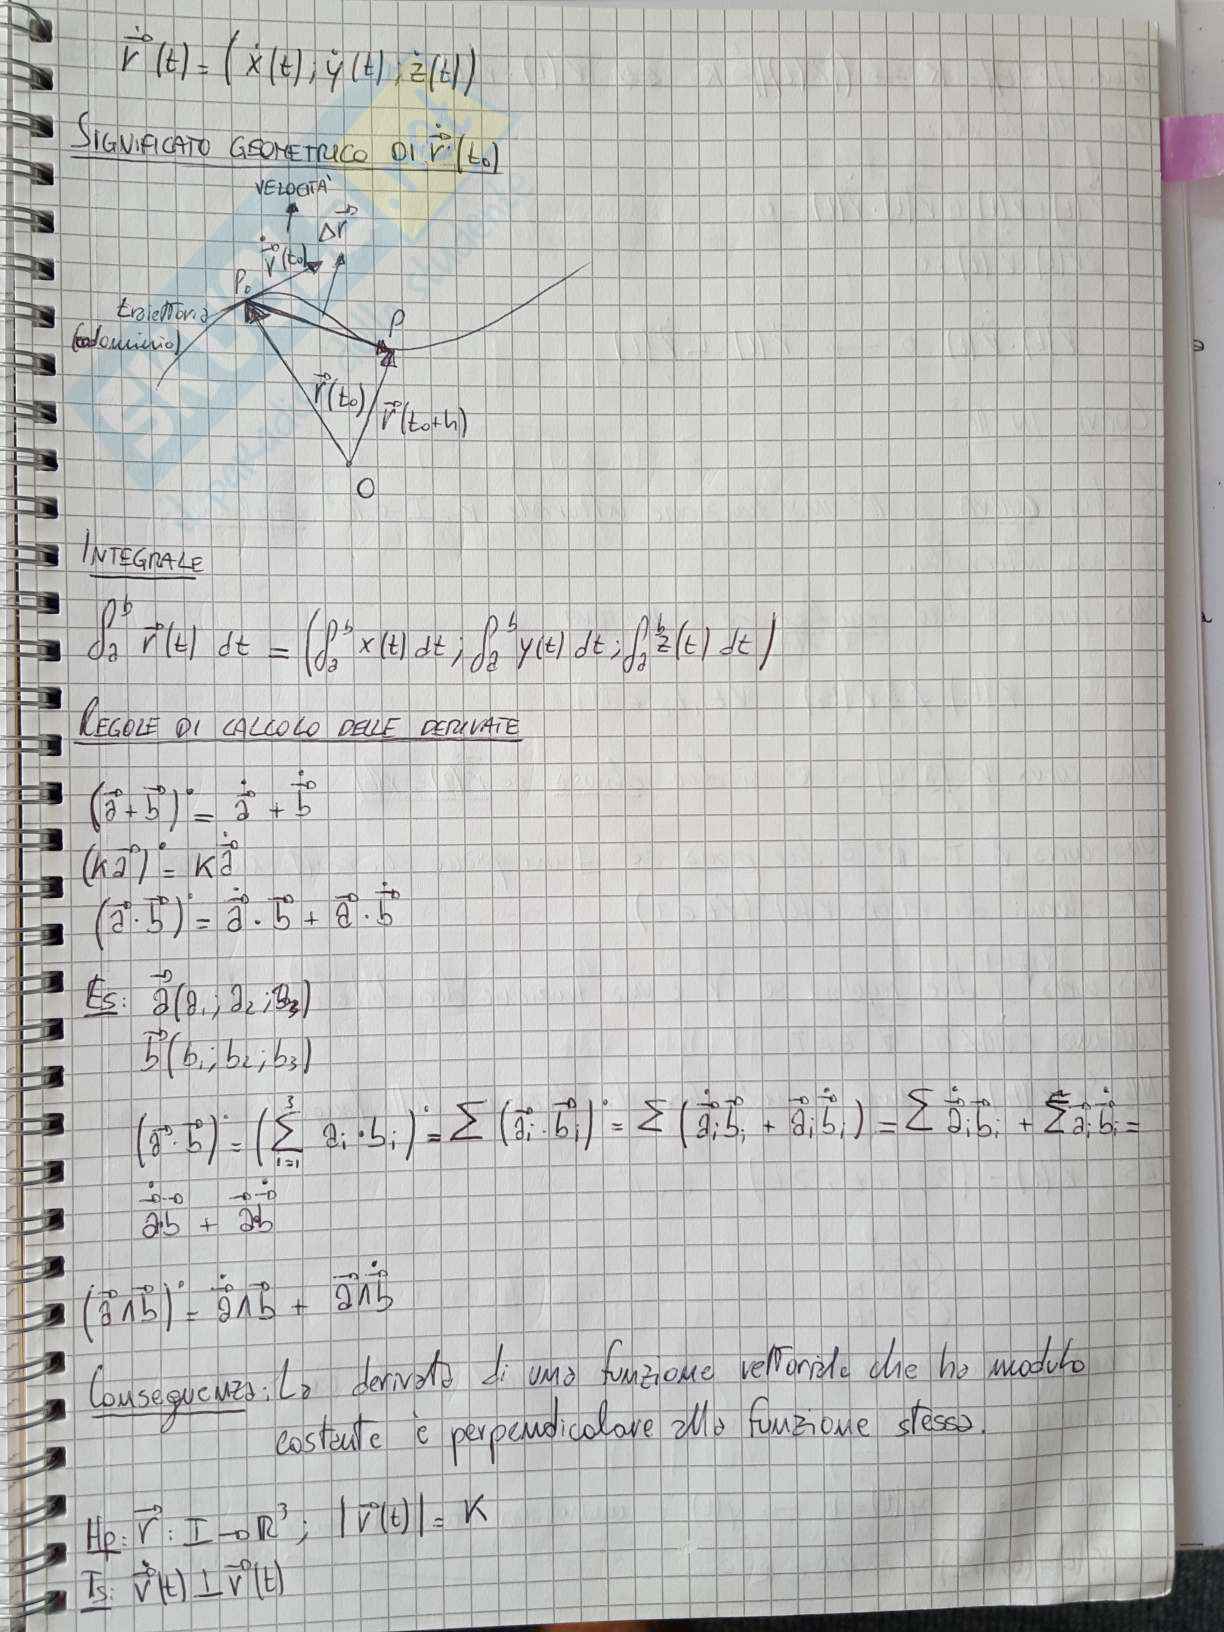 r⃗̇(t) = (ẋ(t); ẏ(t); ż(t))
SIGNIFICATO GEOMETRICO DI r⃗̇(t₀)
VELOCITÀ
Δr⃗
r⃗̇(t₀)
P₀
traiettoria
(codominio)
P
r⃗(t₀)
r⃗(t₀+h)
O
INTEGRALE
∫ₐᵇ r⃗(t) dt = (∫ₐᵇ x(t) dt; ∫ₐᵇ y(t) dt; ∫ₐᵇ z(t) dt)
REGOLE DI CALCOLO DELLE DERIVATE
(a⃗ + b⃗)˙ = a⃗̇ + b⃗̇
(Ka⃗)˙ = Ka⃗̇
(a⃗ · b⃗)˙ = a⃗̇ · b⃗ + a⃗ · b⃗̇
Es: a⃗(a₁; a₂; a₃)
b⃗(b₁; b₂; b₃)
(a⃗ · b⃗)˙ = (∑ᵢ₌₁³ aᵢ · bᵢ)˙ = ∑ (a⃗ᵢ · b⃗ᵢ)˙ = ∑ (a⃗̇ᵢb⃗ᵢ + a⃗ᵢb⃗̇ᵢ) = ∑ a⃗̇ᵢb⃗ᵢ + ∑ a⃗ᵢb⃗̇ᵢ =
a⃗̇·b⃗ + a⃗·b⃗̇
(a⃗ ∧ b⃗)˙ = a⃗̇ ∧ b⃗ + a⃗ ∧ b⃗̇
Conseguenza: La derivata di una funzione vettoriale che ha modulo
costante è perpendicolare alla funzione stessa.
Hp: r⃗: I → ℝ³; |r⃗(t)| = K
Ts: r⃗̇(t) ⊥ r⃗(t)